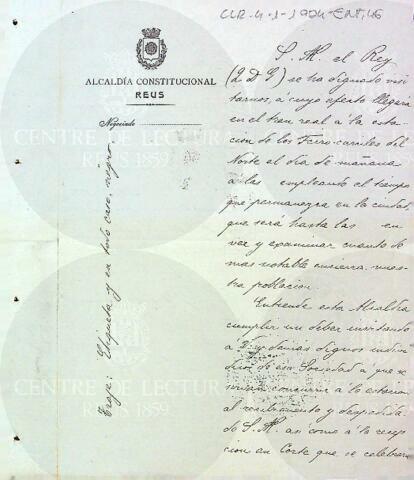 CLR.4.1-1904-ENT.46
ALCALDÍA CONSTITUCIONAL
REUS
Negociado
Traje: Etiqueta y en todo caso, negro.
S. M. el Rey
(q D G) se ha dignado visi
tarnos, á cuyo efecto llegará
en el tren real á la esta
cion de los Ferro-carriles del
Norte el dia de mañana
á las empleando el tiempo
que permanezca en la ciudad,
que será hasta las en
ver y examinar cuanto de
mas notable encierra nues
tra poblacion.
Entiende esta Alcaldia
cumplir un deber invitando
a V. y demás dignos indivi
duos de esa Sociedad a que se
sirvan concurrir a la estacion
al recibimiento y despedida
de S. M. asi como á la recep
cion en Corte que se celebrará
CENTRE DE LECTURA
REUS 1859
CENTRE DE LECTURA
REUS 1859